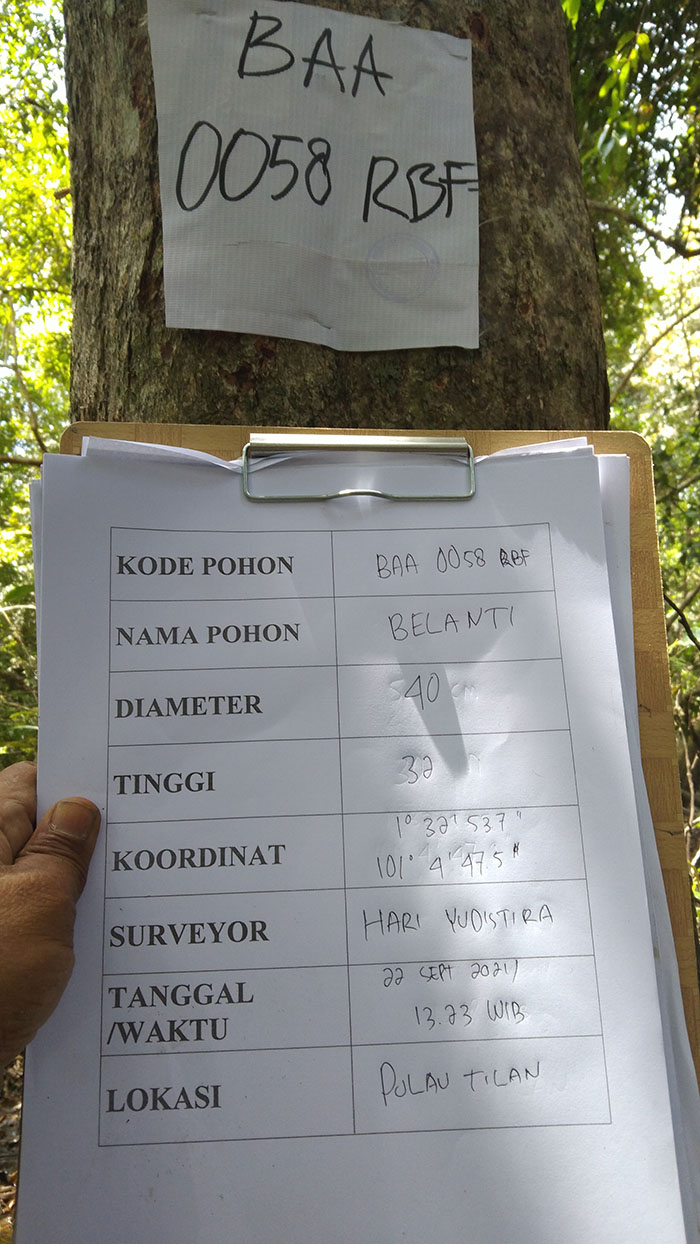 BAA
0058 RBF
KODE POHON BAA 0058 RBF
NAMA POHON BELANTI
DIAMETER 40
TINGGI 32
KOORDINAT 1° 32' 537"
101° 4' 47.5"
SURVEYOR HARI YUDISTIRA
TANGGAL 22 SEPT 2021/
/WAKTU 13.23 WIB
LOKASI PULAU TILAN